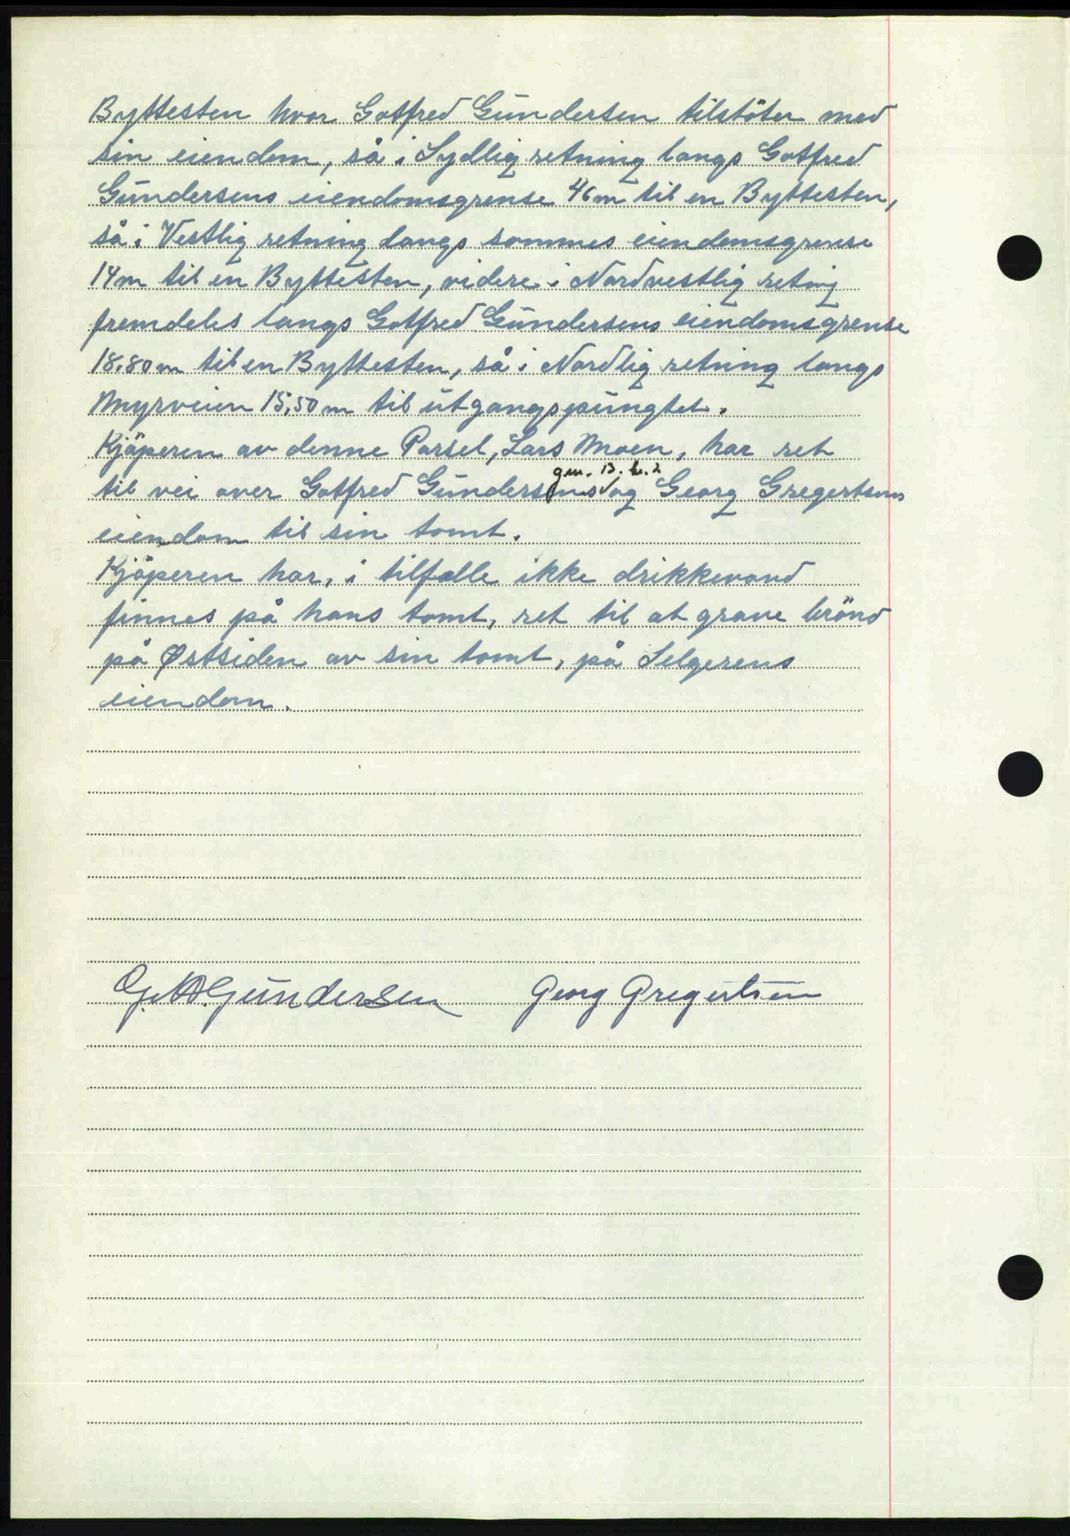 Byttesten hvor Gotfred Gundersen tilstöter med
sin eiendom, så i Sydlig retning langs Gotfred
Gundersens eiendomsgrense 46m til en Byttesten,
så i Vestlig retning langs sammes eiendomsgrense
14m til en Byttesten, videre i Nordvestlig retnig
fremdeles langs Gotfred Gundersens eiendomsgrense
18,80m til en Byttesten, så i Nordlig retning langs
Myrveien 15,50m til utgangspungtet.
Kjöperen av denne Parsel, Lars Moen, har ret
gn. 13. b. 2
til vei over Gotfred Gundersens og Georg Gregertsens
eiendom til sin tomt.
Kjöperen har, i tilfælle ikke drikkevand
finnes på hans tomt, ret til at grave brönd
på Østsiden av sin tomt, på Selgerens
eiendom.
G. A. Gundersen Georg Gregertsen